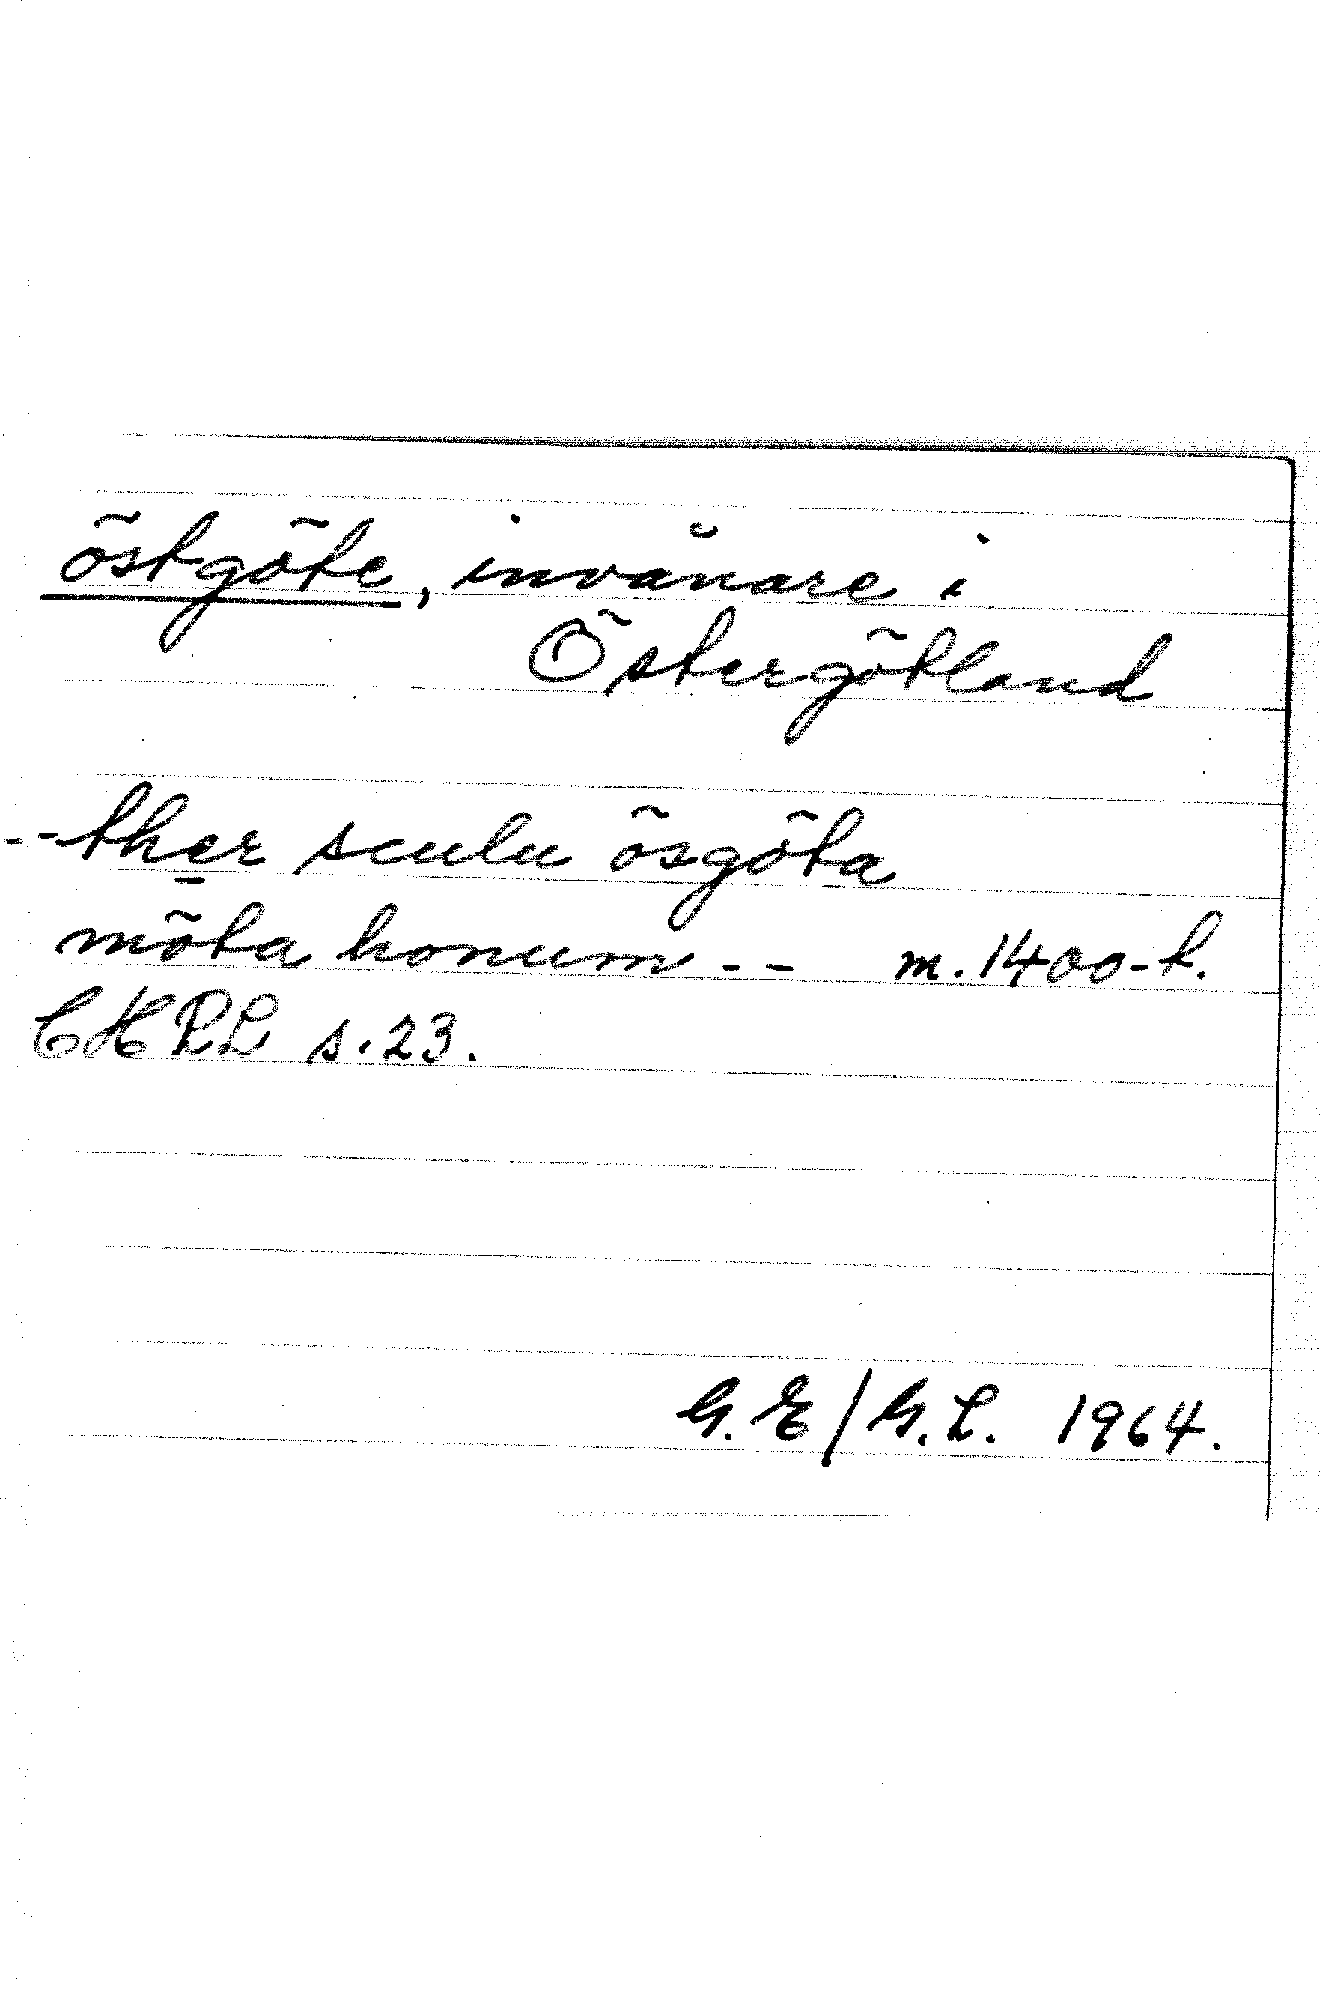 östgöte, invånare i
Östergötland
--ther sculu ösgöta
möta honum -- m. 1400-t.
CHRL s. 23.
G. E/G. L. 1964.